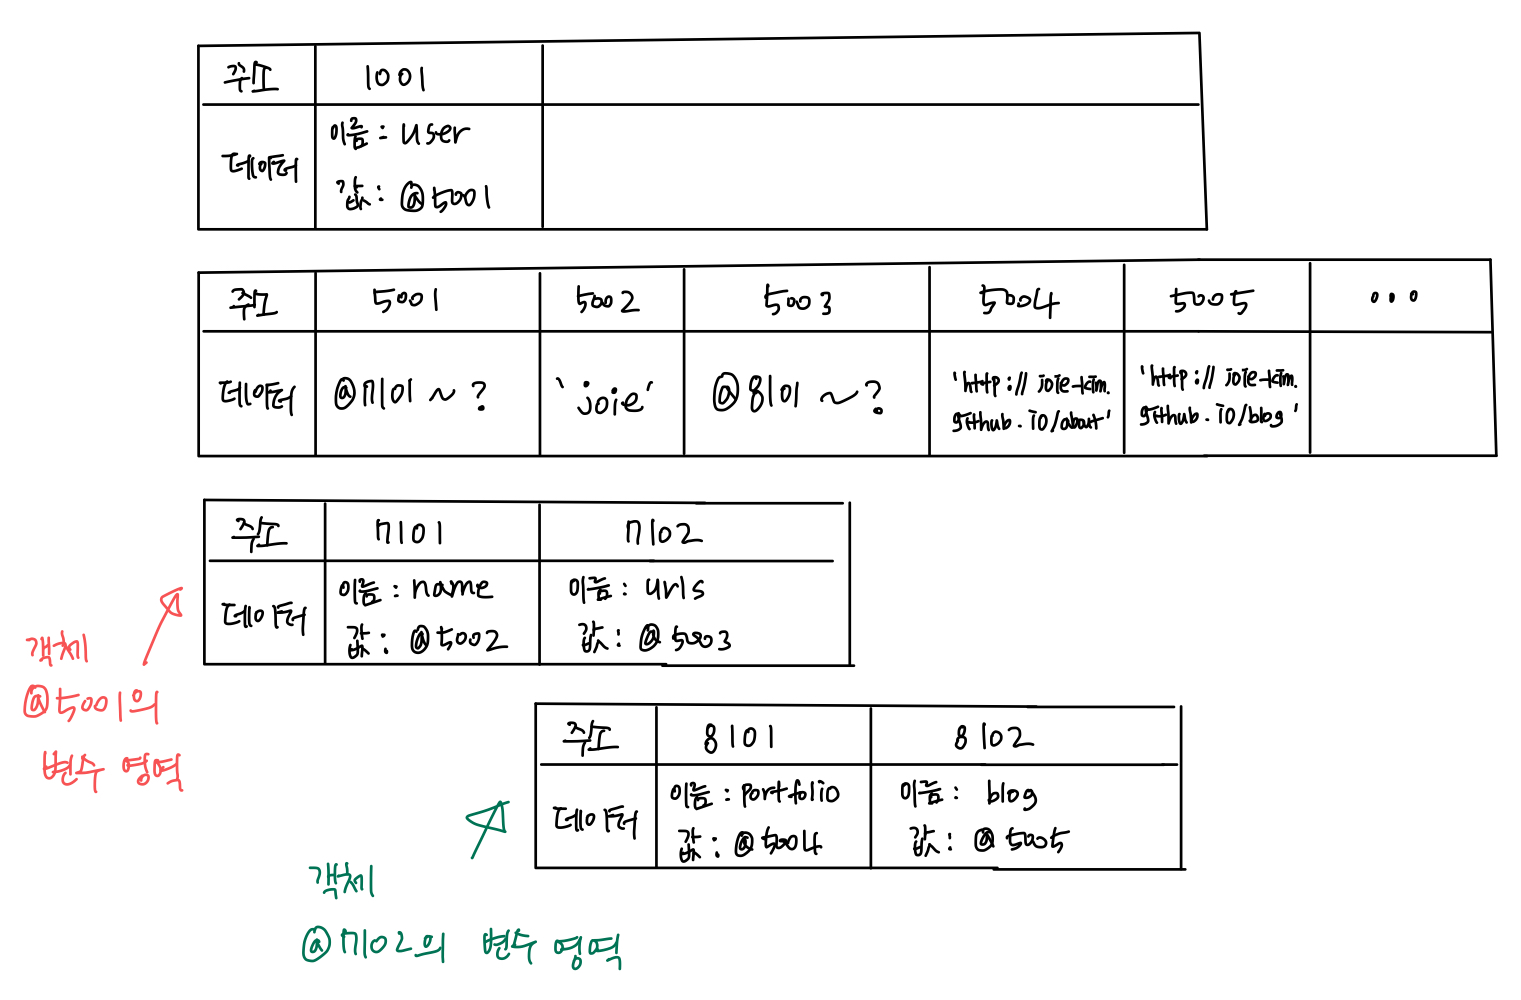 주소 1001
데이터 이름 : user
값 : @5001
주소 5001 5002 5003 5004 5005 ...
데이터 @7101 ~ ? 'joie' @8101 ~ ? 'http://joie-kim. 'http://joie-kim.
github.io/about' github.io/blog'
주소 7101 7102
데이터 이름 : name 이름 : urls
값 : @5002 값 : @5003
객체
@5001의
변수 영역
주소 8101 8102
데이터 이름 : portfolio 이름 : blog
값 : @5004 값 : @5005
객체
@7102의 변수 영역